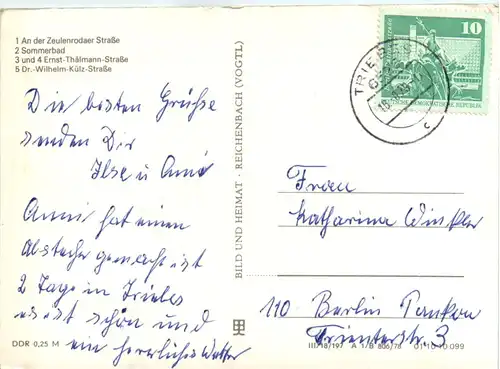 1 An der Zeulenrodaer Straße
2 Sommerbad
3 und 4 Ernst-Thälmann-Straße
5 Dr.-Wilhelm-Külz-Straße
Die besten Grühse
senden Dir
Ilse u
Anni hat einen
Abstecher gemacht ist
2 Tage in Triebes
es ist schön und
ein herrliches Wetter
DDR 0,25 M
BILD UND HEIMAT · REICHENBACH (VOGTL)
TRIEBES
c
10
DEUTSCHE DEMOKRATISCHE REPUBLIK
Frau
Katharina Winkler
110 Berlin Pankow
Trienterstr. 3
III/18/197 A 1/B 806/78 01 10 10 099